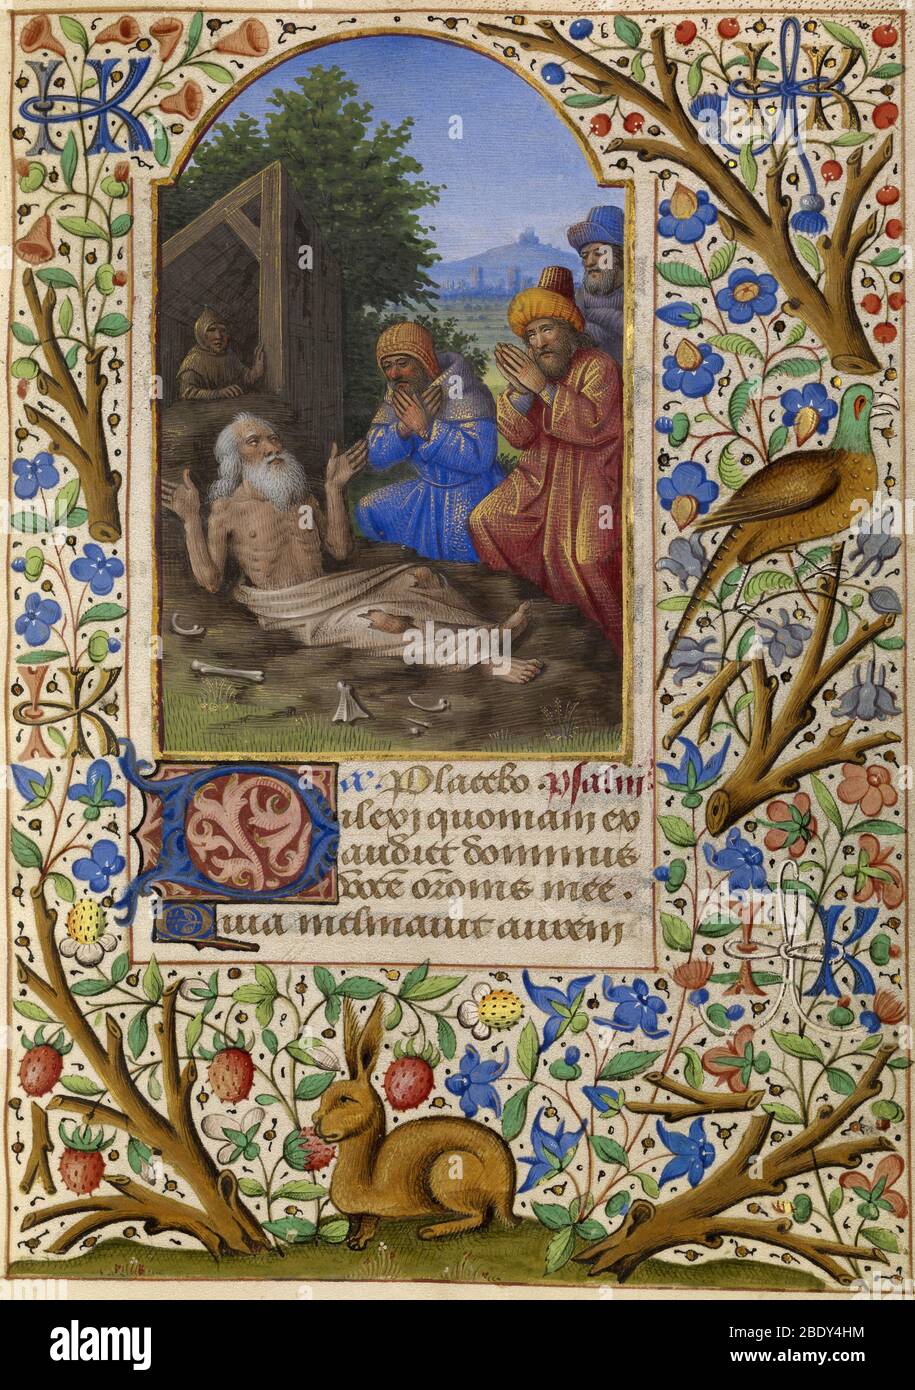 IK
IK
IK
IK
Placebo. psalm
Dilexi quoniam ex
audiet dominus
vocē orōnis mee.
Quia inclinauit aurem
alamy
Image ID: 2BDY4HM
www.alamy.com